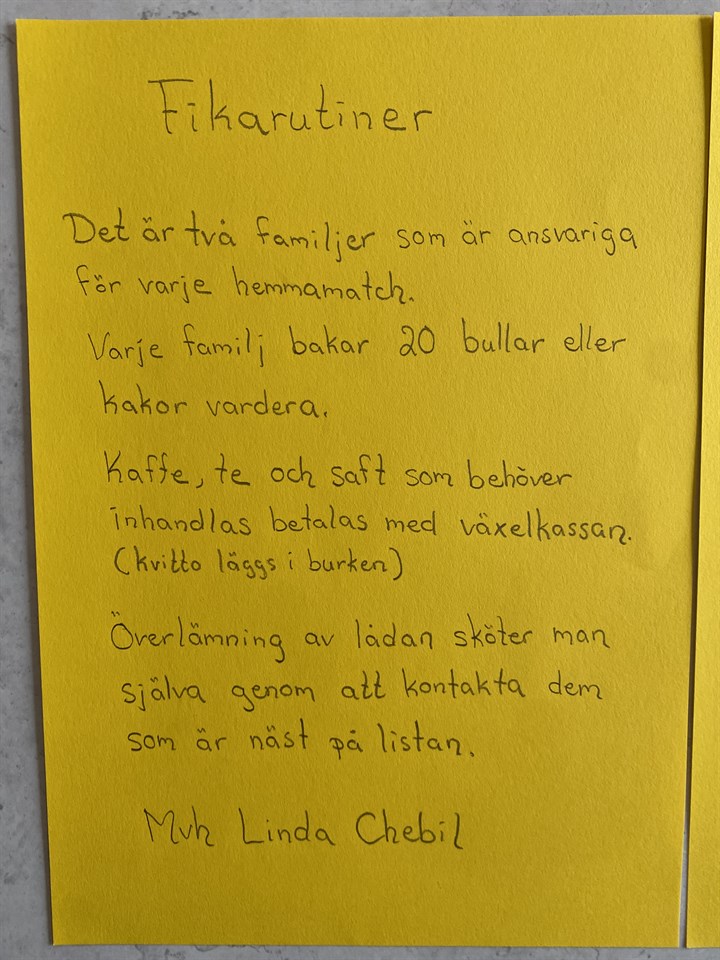 Fikarutiner
Det är två familjer som är ansvariga
för varje hemmamatch.
Varje familj bakar 20 bullar eller
kakor vardera.
Kaffe, te och saft som behöver
inhandlas betalas med växelkassan.
(kvitto läggs i burken)
Överlämning av lådan sköter man
själva genom att kontakta dem
som är näst på listan.
Mvh Linda Chebil